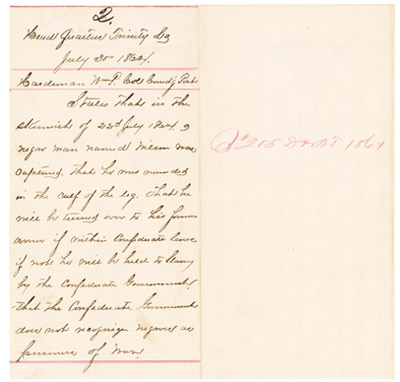 2.
Head Quarters Trinity La
July 30th 1864.
Hardeman Wm P. Col Comdg Post
States that in the
skirmish of 22d July 1864 a
negro man named Wilson was
captured, that he was wounded
in the calf of the leg. That he
will be turned over to his former
owner if within Confederate lines
if not he will be held to slavery
by the Confederate Government,
that the Confederate Government
does not recognize negroes as
prisoners of War.
215 1864